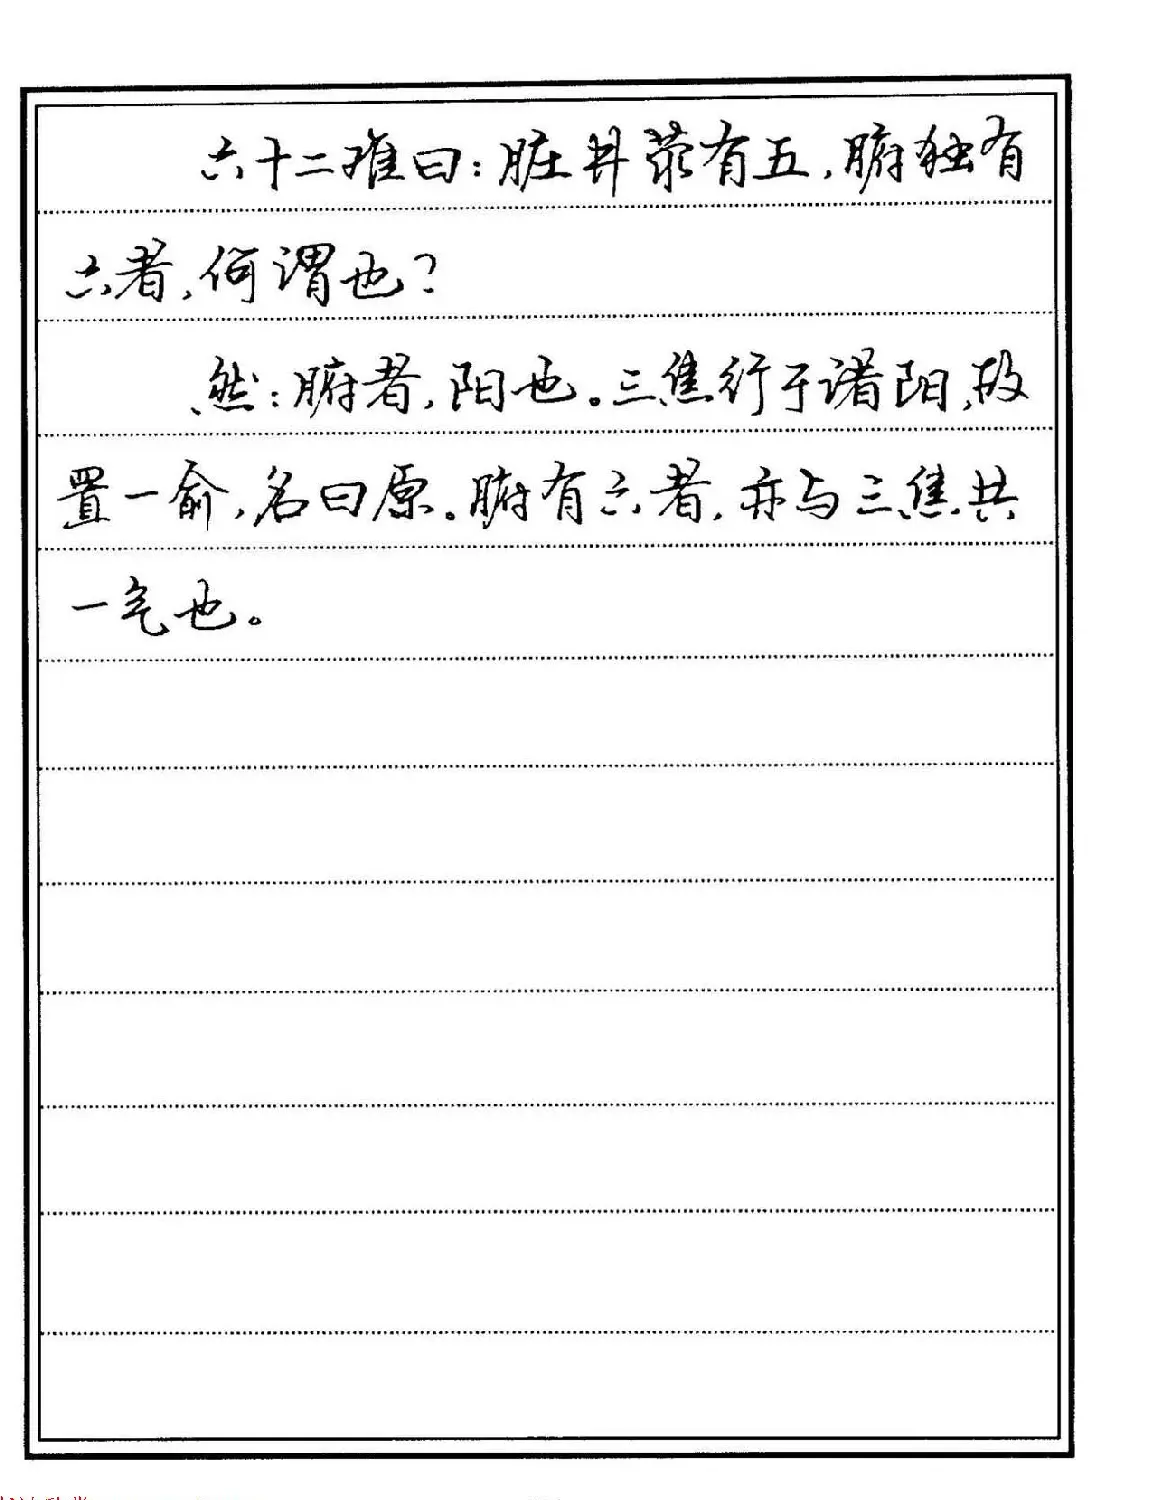 六十二难曰：脏井荥有五，腑独有
六者，何谓也？
然：腑者，阳也。三焦行于诸阳，故
置一俞，名曰原。腑有六者，亦与三焦共
一气也。